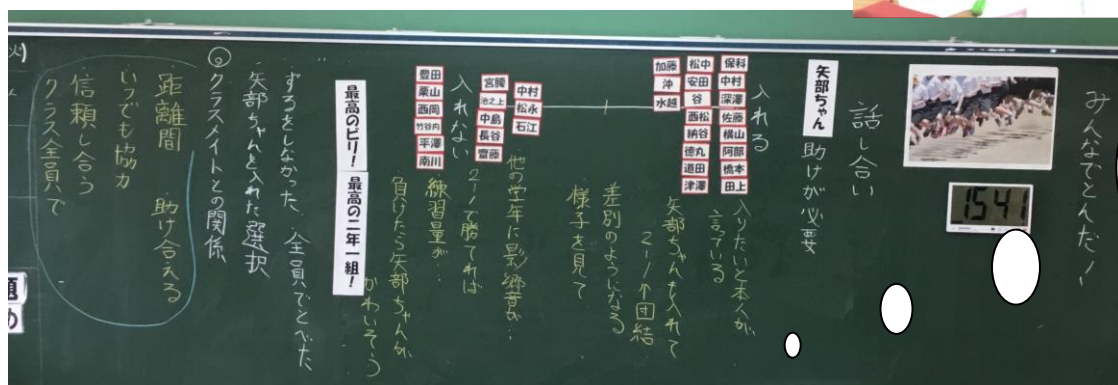 みんなでとんだ！！
1541
話し合い
矢部ちゃん 助けが必要
入れる
保科
中村
深澤
佐藤
横山
阿部
橋本
田上
松中
安田
谷
西松
納谷
徳丸
道田
津澤
加藤
沖
水越
入りたいと本人が
言っている
矢部ちゃんも入れて
2-1↑団結
差別のようになる
様子を見て
中村
松永
石江
宮腰
池之上
中島
長谷
齋藤
他の学年に影響が…
入れない
豊田
栗山
西岡
竹谷内
平澤
南川
2-1で勝てれば
練習量が…
負けたら矢部ちゃんが
かわいそう
最高のビリ！ 最高の二年一組！
ずるをしなかった 全員でとべた
矢部ちゃんと入れた選択
クラスメイトとの関係
距離間 助け合える
いつでも協力
信頼し合う
クラス全員で
火)
め